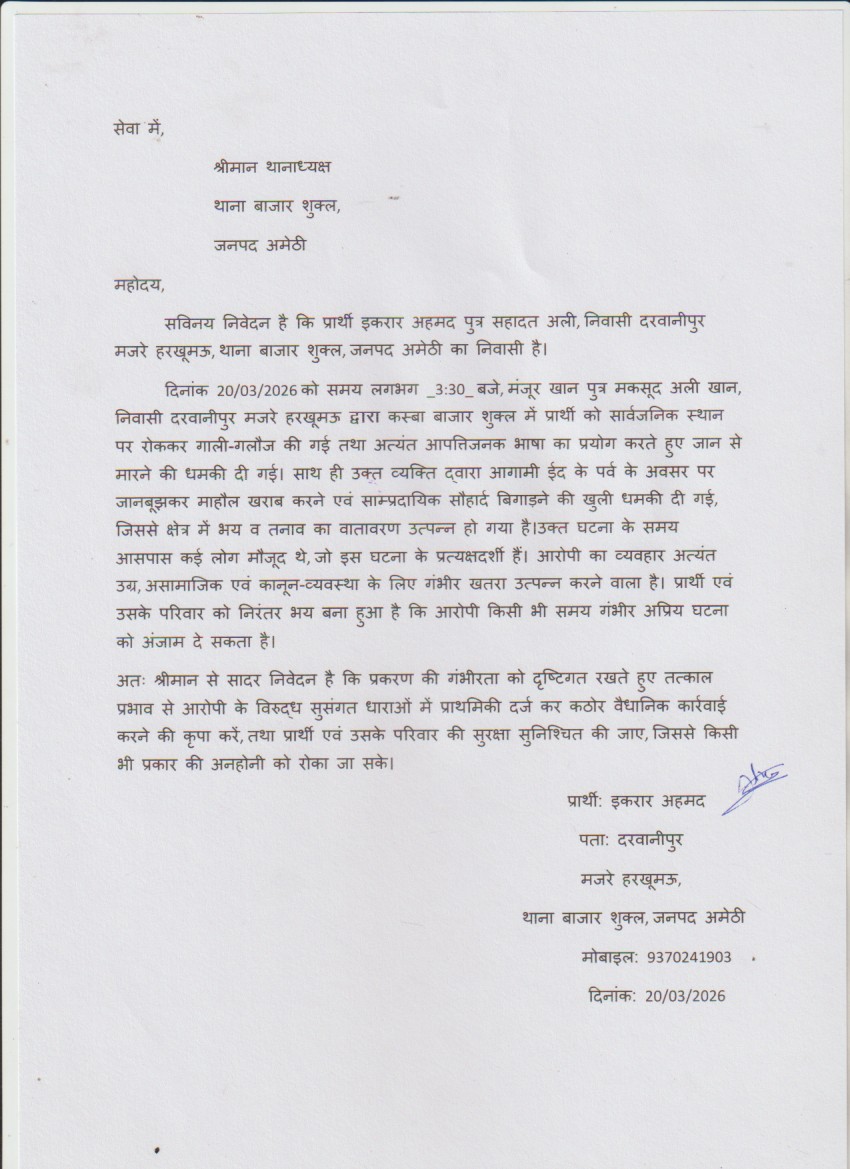 सेवा में,
श्रीमान थानाध्यक्ष
थाना बाजार शुक्ल,
जनपद अमेठी
महोदय,
सविनय निवेदन है कि प्रार्थी इकरार अहमद पुत्र सहादत अली, निवासी दरवानीपुर
मजरे हरखूमऊ, थाना बाजार शुक्ल, जनपद अमेठी का निवासी है।
दिनांक 20/03/2026 को समय लगभग _3:30_ बजे, मंजूर खान पुत्र मकसूद अली खान,
निवासी दरवानीपुर मजरे हरखूमऊ द्वारा कस्बा बाजार शुक्ल में प्रार्थी को सार्वजनिक स्थान
पर रोककर गाली-गलौज की गई तथा अत्यंत आपत्तिजनक भाषा का प्रयोग करते हुए जान से
मारने की धमकी दी गई। साथ ही उक्त व्यक्ति द्वारा आगामी ईद के पर्व के अवसर पर
जानबूझकर माहौल खराब करने एवं साम्प्रदायिक सौहार्द बिगाड़ने की खुली धमकी दी गई,
जिससे क्षेत्र में भय व तनाव का वातावरण उत्पन्न हो गया है।उक्त घटना के समय
आसपास कई लोग मौजूद थे, जो इस घटना के प्रत्यक्षदर्शी हैं। आरोपी का व्यवहार अत्यंत
उग्र, असामाजिक एवं कानून-व्यवस्था के लिए गंभीर खतरा उत्पन्न करने वाला है। प्रार्थी एवं
उसके परिवार को निरंतर भय बना हुआ है कि आरोपी किसी भी समय गंभीर अप्रिय घटना
को अंजाम दे सकता है।
अतः श्रीमान से सादर निवेदन है कि प्रकरण की गंभीरता को दृष्टिगत रखते हुए तत्काल
प्रभाव से आरोपी के विरुद्ध सुसंगत धाराओं में प्राथमिकी दर्ज कर कठोर वैधानिक कार्रवाई
करने की कृपा करें, तथा प्रार्थी एवं उसके परिवार की सुरक्षा सुनिश्चित की जाए, जिससे किसी
भी प्रकार की अनहोनी को रोका जा सके।
प्रार्थी: इकरार अहमद
पता: दरवानीपुर
मजरे हरखूमऊ,
थाना बाजार शुक्ल, जनपद अमेठी
मोबाइल: 9370241903
दिनांक: 20/03/2026